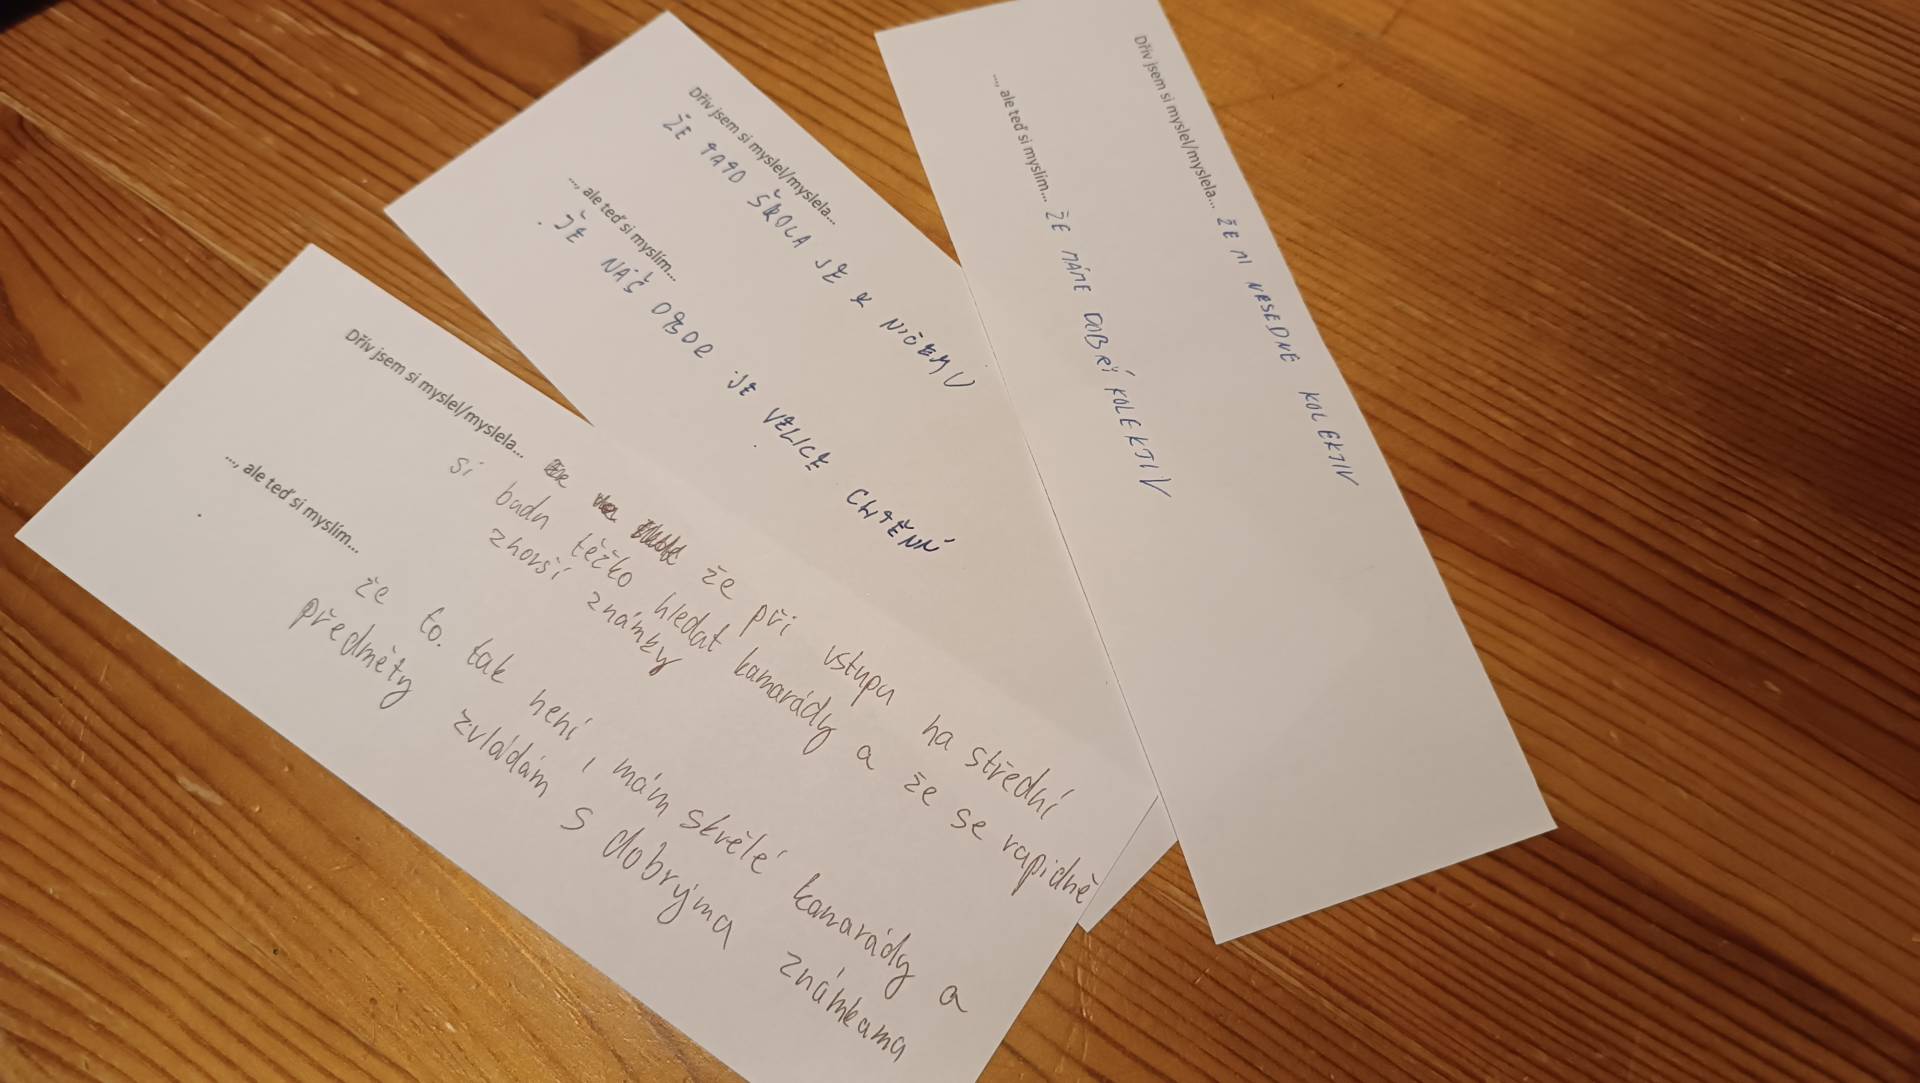 Dřív jsem si myslel/myslela... že při vstupu na střední
si budu těžko hledat kamarády a že se rapidně
zhorší známky
..., ale teď si myslím... že to. tak není, mám skvělé kamarády a
předměty zvládám s dobrýma známkama
Dřív jsem si myslel/myslela...
ŽE TATO ŠKOLA JE K NIČEMU
..., ale teď si myslím...
ŽE NÁŠ OBOR JE VELICE CHTĚNÍ
Dřív jsem si myslel/myslela... ŽE MI NESEDNE KOLEKTIV
..., ale teď si myslím... ŽE MÁME DOBRÝ KOLEKTIV